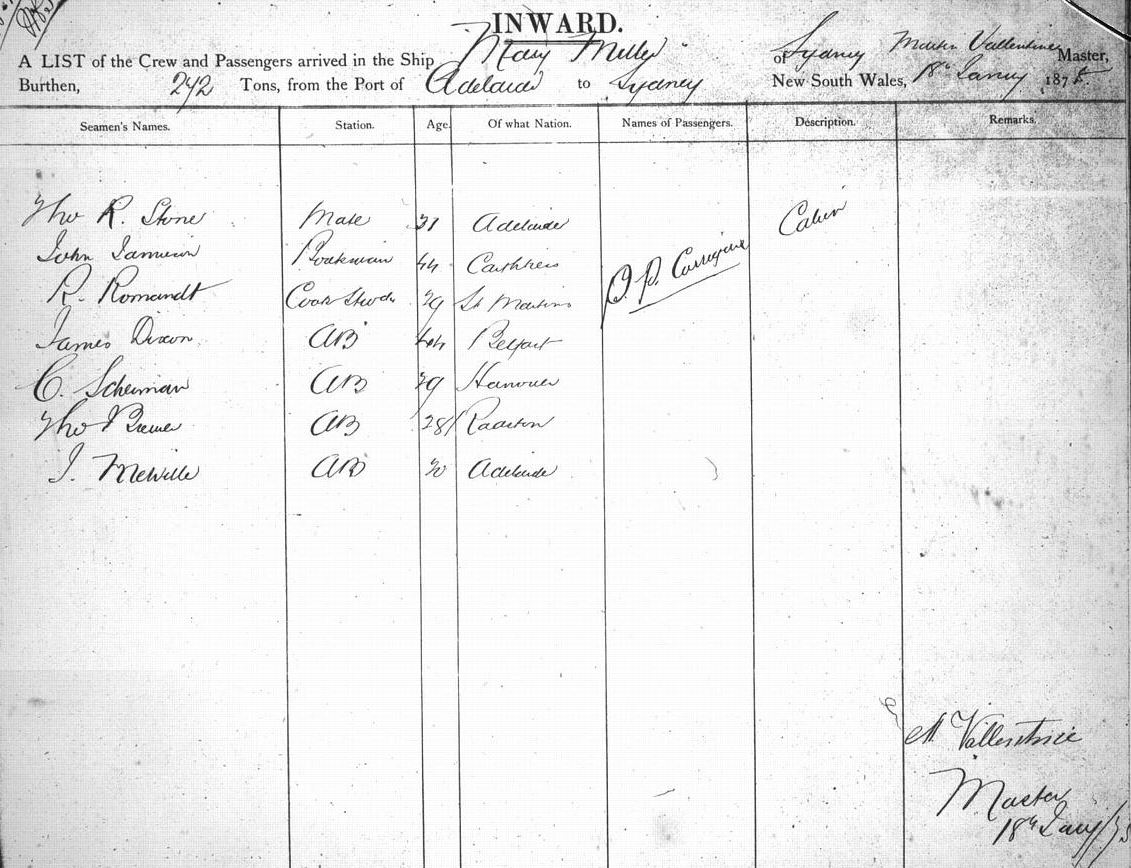 INWARD.
A LIST of the Crew and Passengers arrived in the Ship Mary Miller of Sydney Martin Vallentine Master,
Burthen, 242 Tons, from the Port of Adelaide to Sydney New South Wales, 18th Janry 1875
Seamen's Names. Station. Age. Of what Nation. Names of Passengers. Description. Remarks.
Tho R. Stone Mate 31 Adelaide Cabin
John Jamieson 44
R. Romandt Cook Stwd 29 St Martins
James Dixon AB 44 Belfast
C. Scheiman AB 29 Hanover
Tho AB 28
J. Melville AB 20 Adelaide
M Vallentine
Master
18th Jany/75